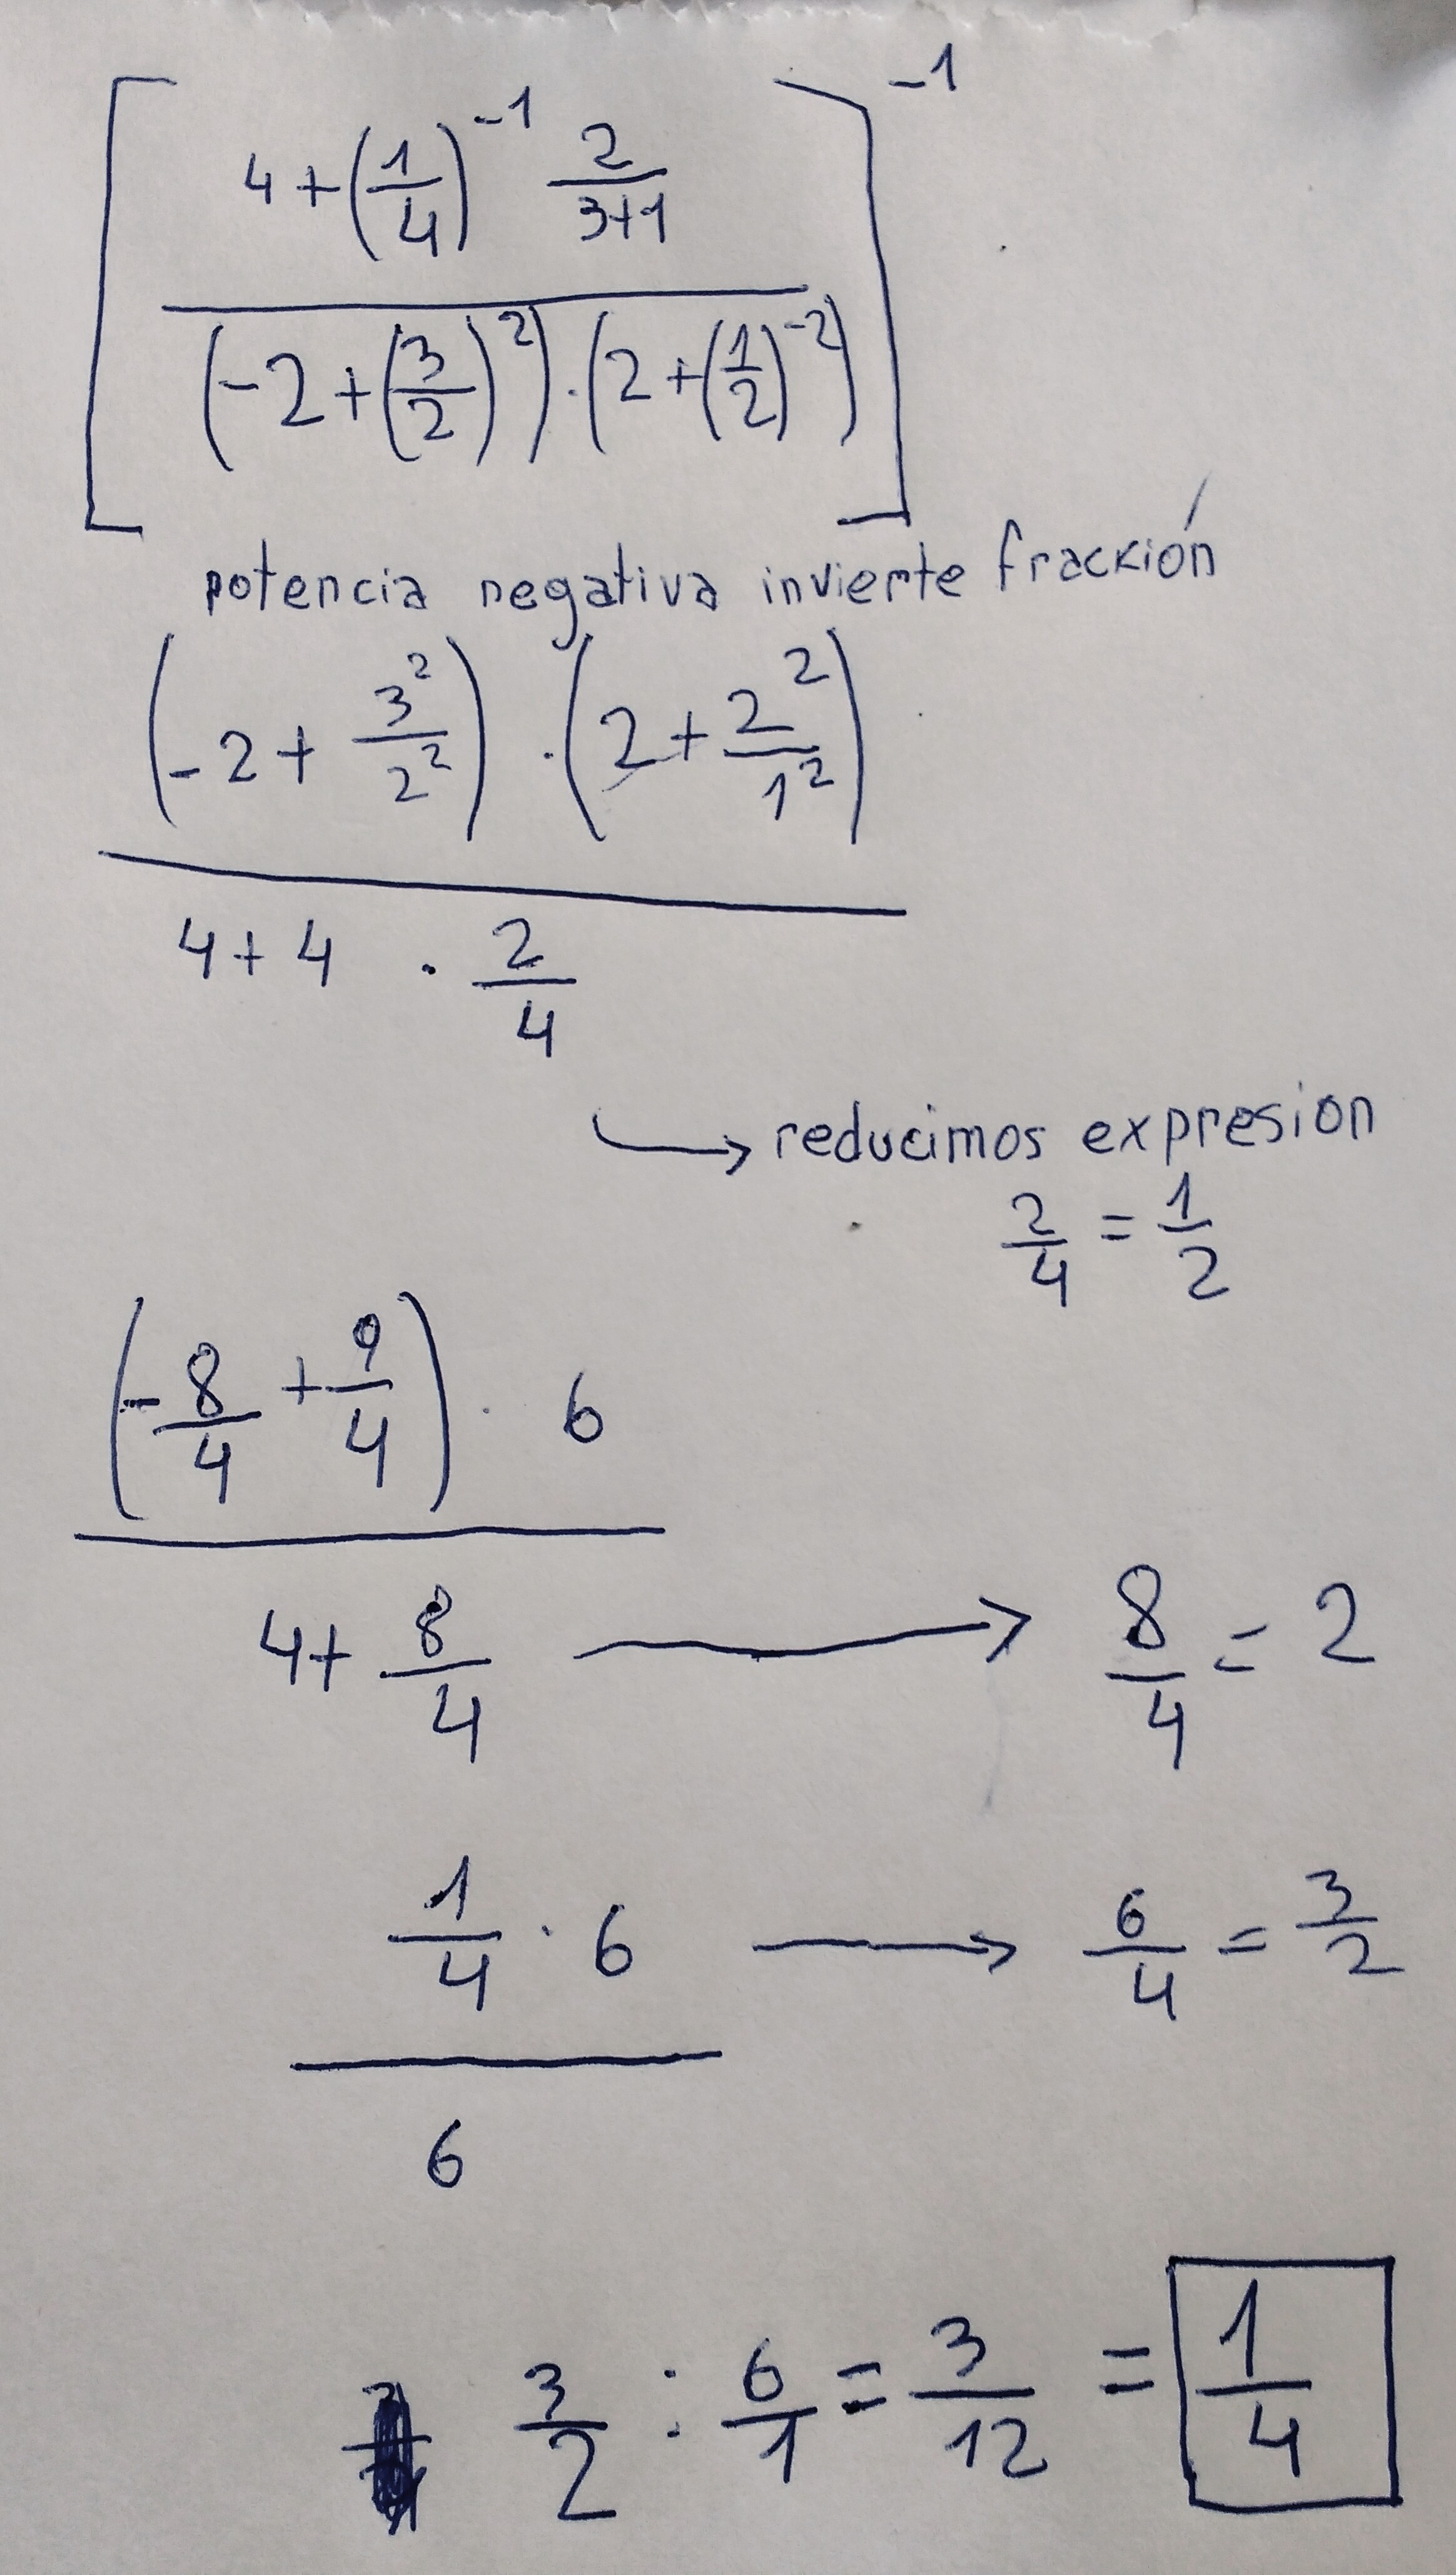 [ (4 + (1/4)^-1 2/(3+1)) / ((-2 + (3/2)^2) · (2 + (1/2)^-2)) ]^-1
potencia negativa invierte fracción
((-2 + 3^2/2^2) · (2 + 2^2/1^2)) / (4 + 4 · 2/4)
→ reducimos expresion
2/4 = 1/2
((-8/4 + 9/4) · 6) / (4 + 8/4) → 8/4 = 2
(1/4 · 6) / 6 → 6/4 = 3/2
3/2 : 6/1 = 3/12 = 1/4